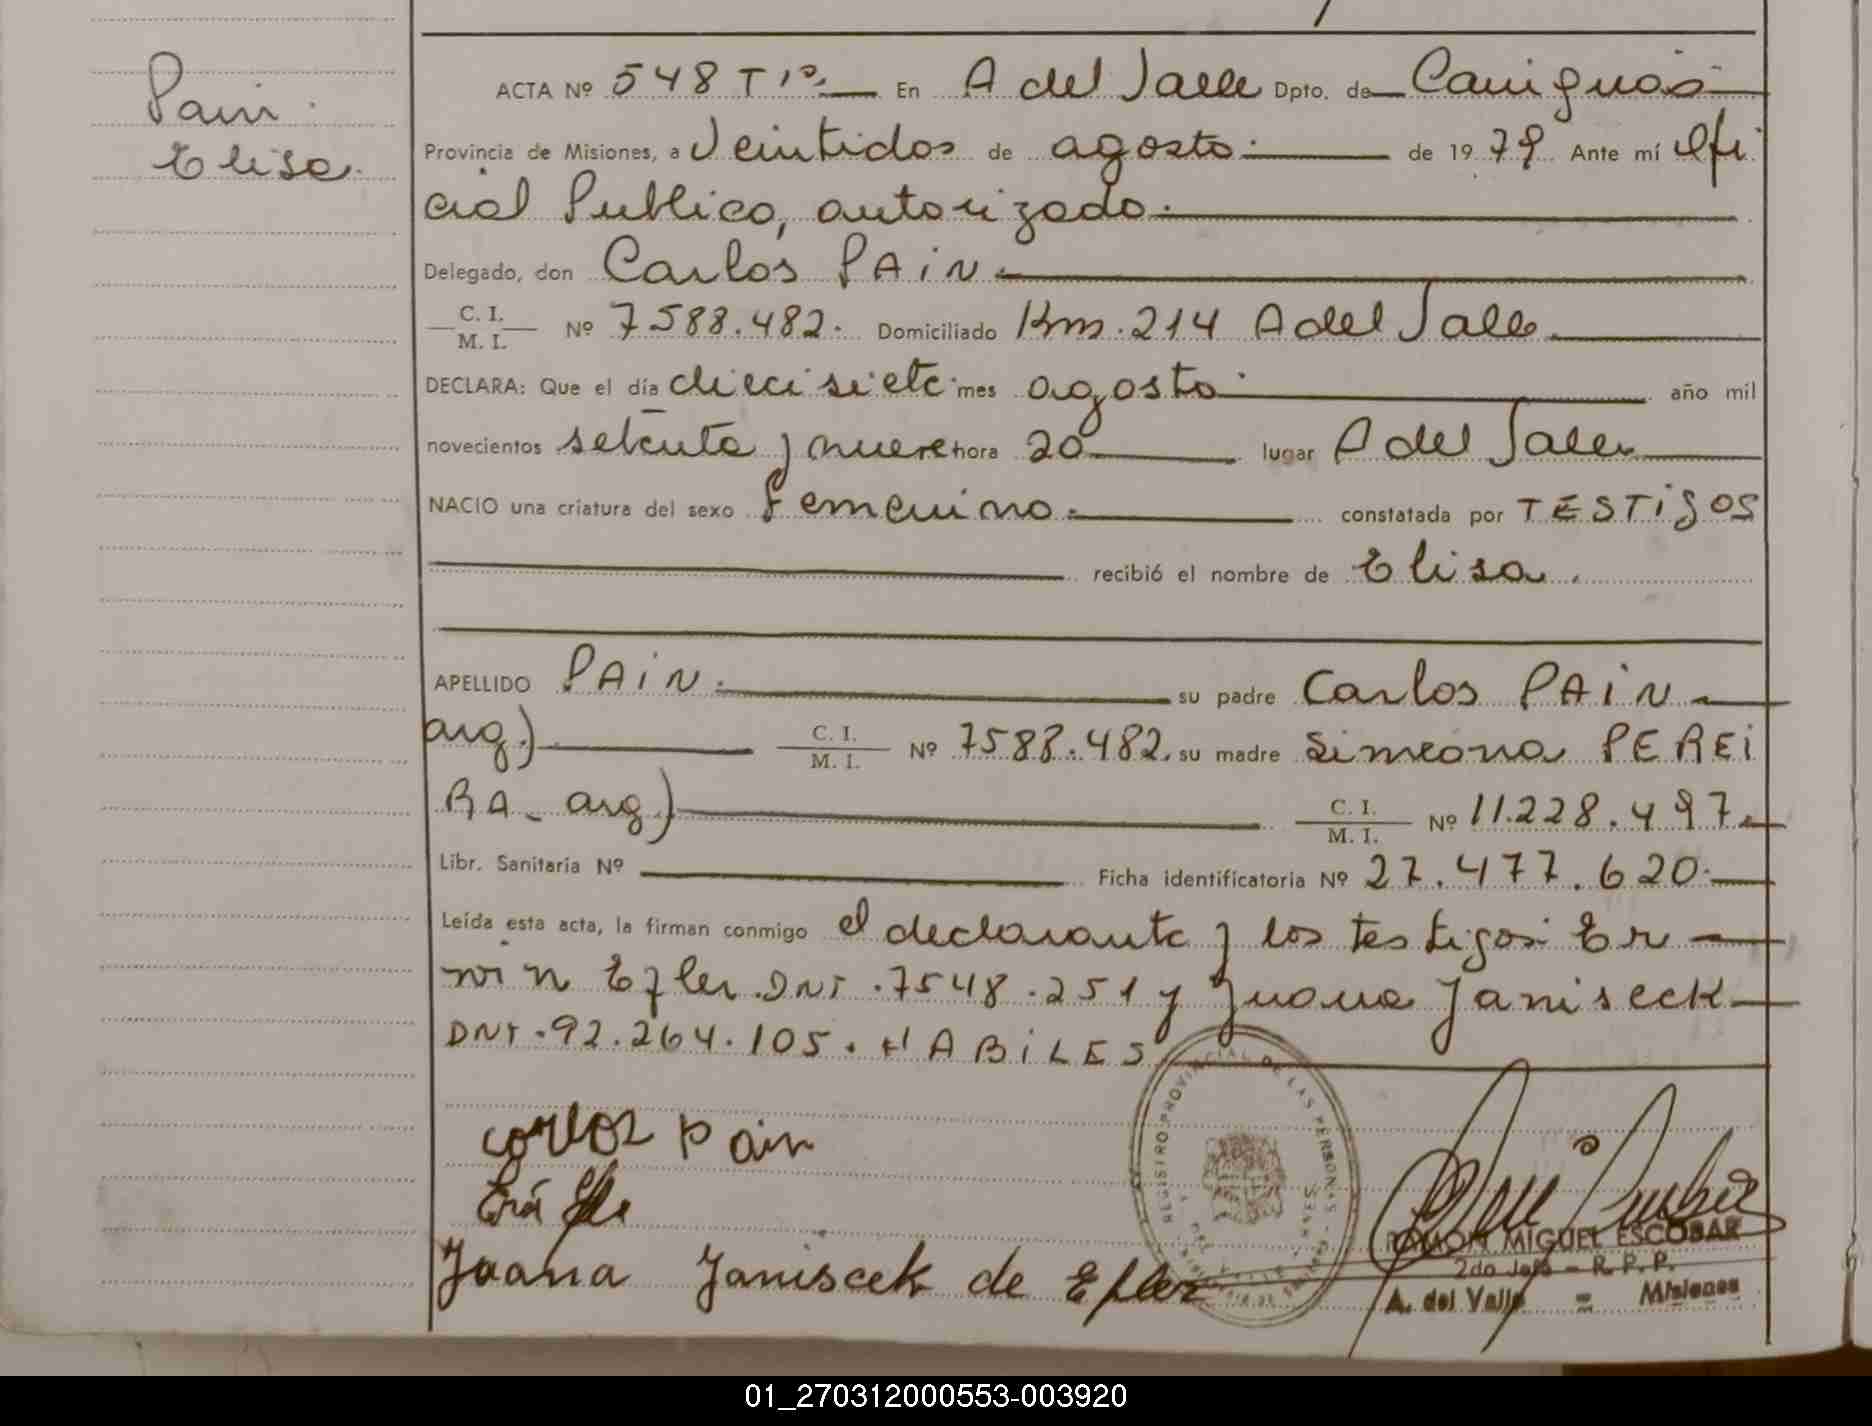 Pain
Elisa.
ACTA Nº 548 Tº1º. En A del Valle Dpto. de Cainguás
Provincia de Misiones, a Veintidos de agosto. de 1979. Ante mí Ofi
cial Publico, autorizado.
Delegado, don Carlos PAIN
C. I.
M. I. Nº 7588.482. Domiciliado Km. 214 A del Valle
DECLARA: Que el día diecisiete mes agosto. año mil
novecientos setenta y nueve hora 20 lugar A del Valle
NACIO una criatura del sexo femenino. constatada por TESTIGOS
recibió el nombre de Elisa.
APELLIDO PAIN. su padre Carlos PAIN
arg) C. I.
M. I. Nº 7588.482. su madre Simeona PEREI
RA_ arg) C. I.
M. I. Nº 11.228.497.
Libr. Sanitaria Nº Ficha identificatoria Nº 27.477.620.
Leída esta acta, la firman conmigo el declarante y los testigos: Er
win Efler. DNI. 7548.251 y Juana Janiseck
DNI. 92.264.105. HABILES
Carlos Pain
Juana Janiscek de Efler
REGISTRO PROVINCIAL DE LAS PERSONAS
RAMON MIGUEL ESCOBAR
2do Jefe - R. P. P.
A. del Valle = Misiones
01_270312000553-003920